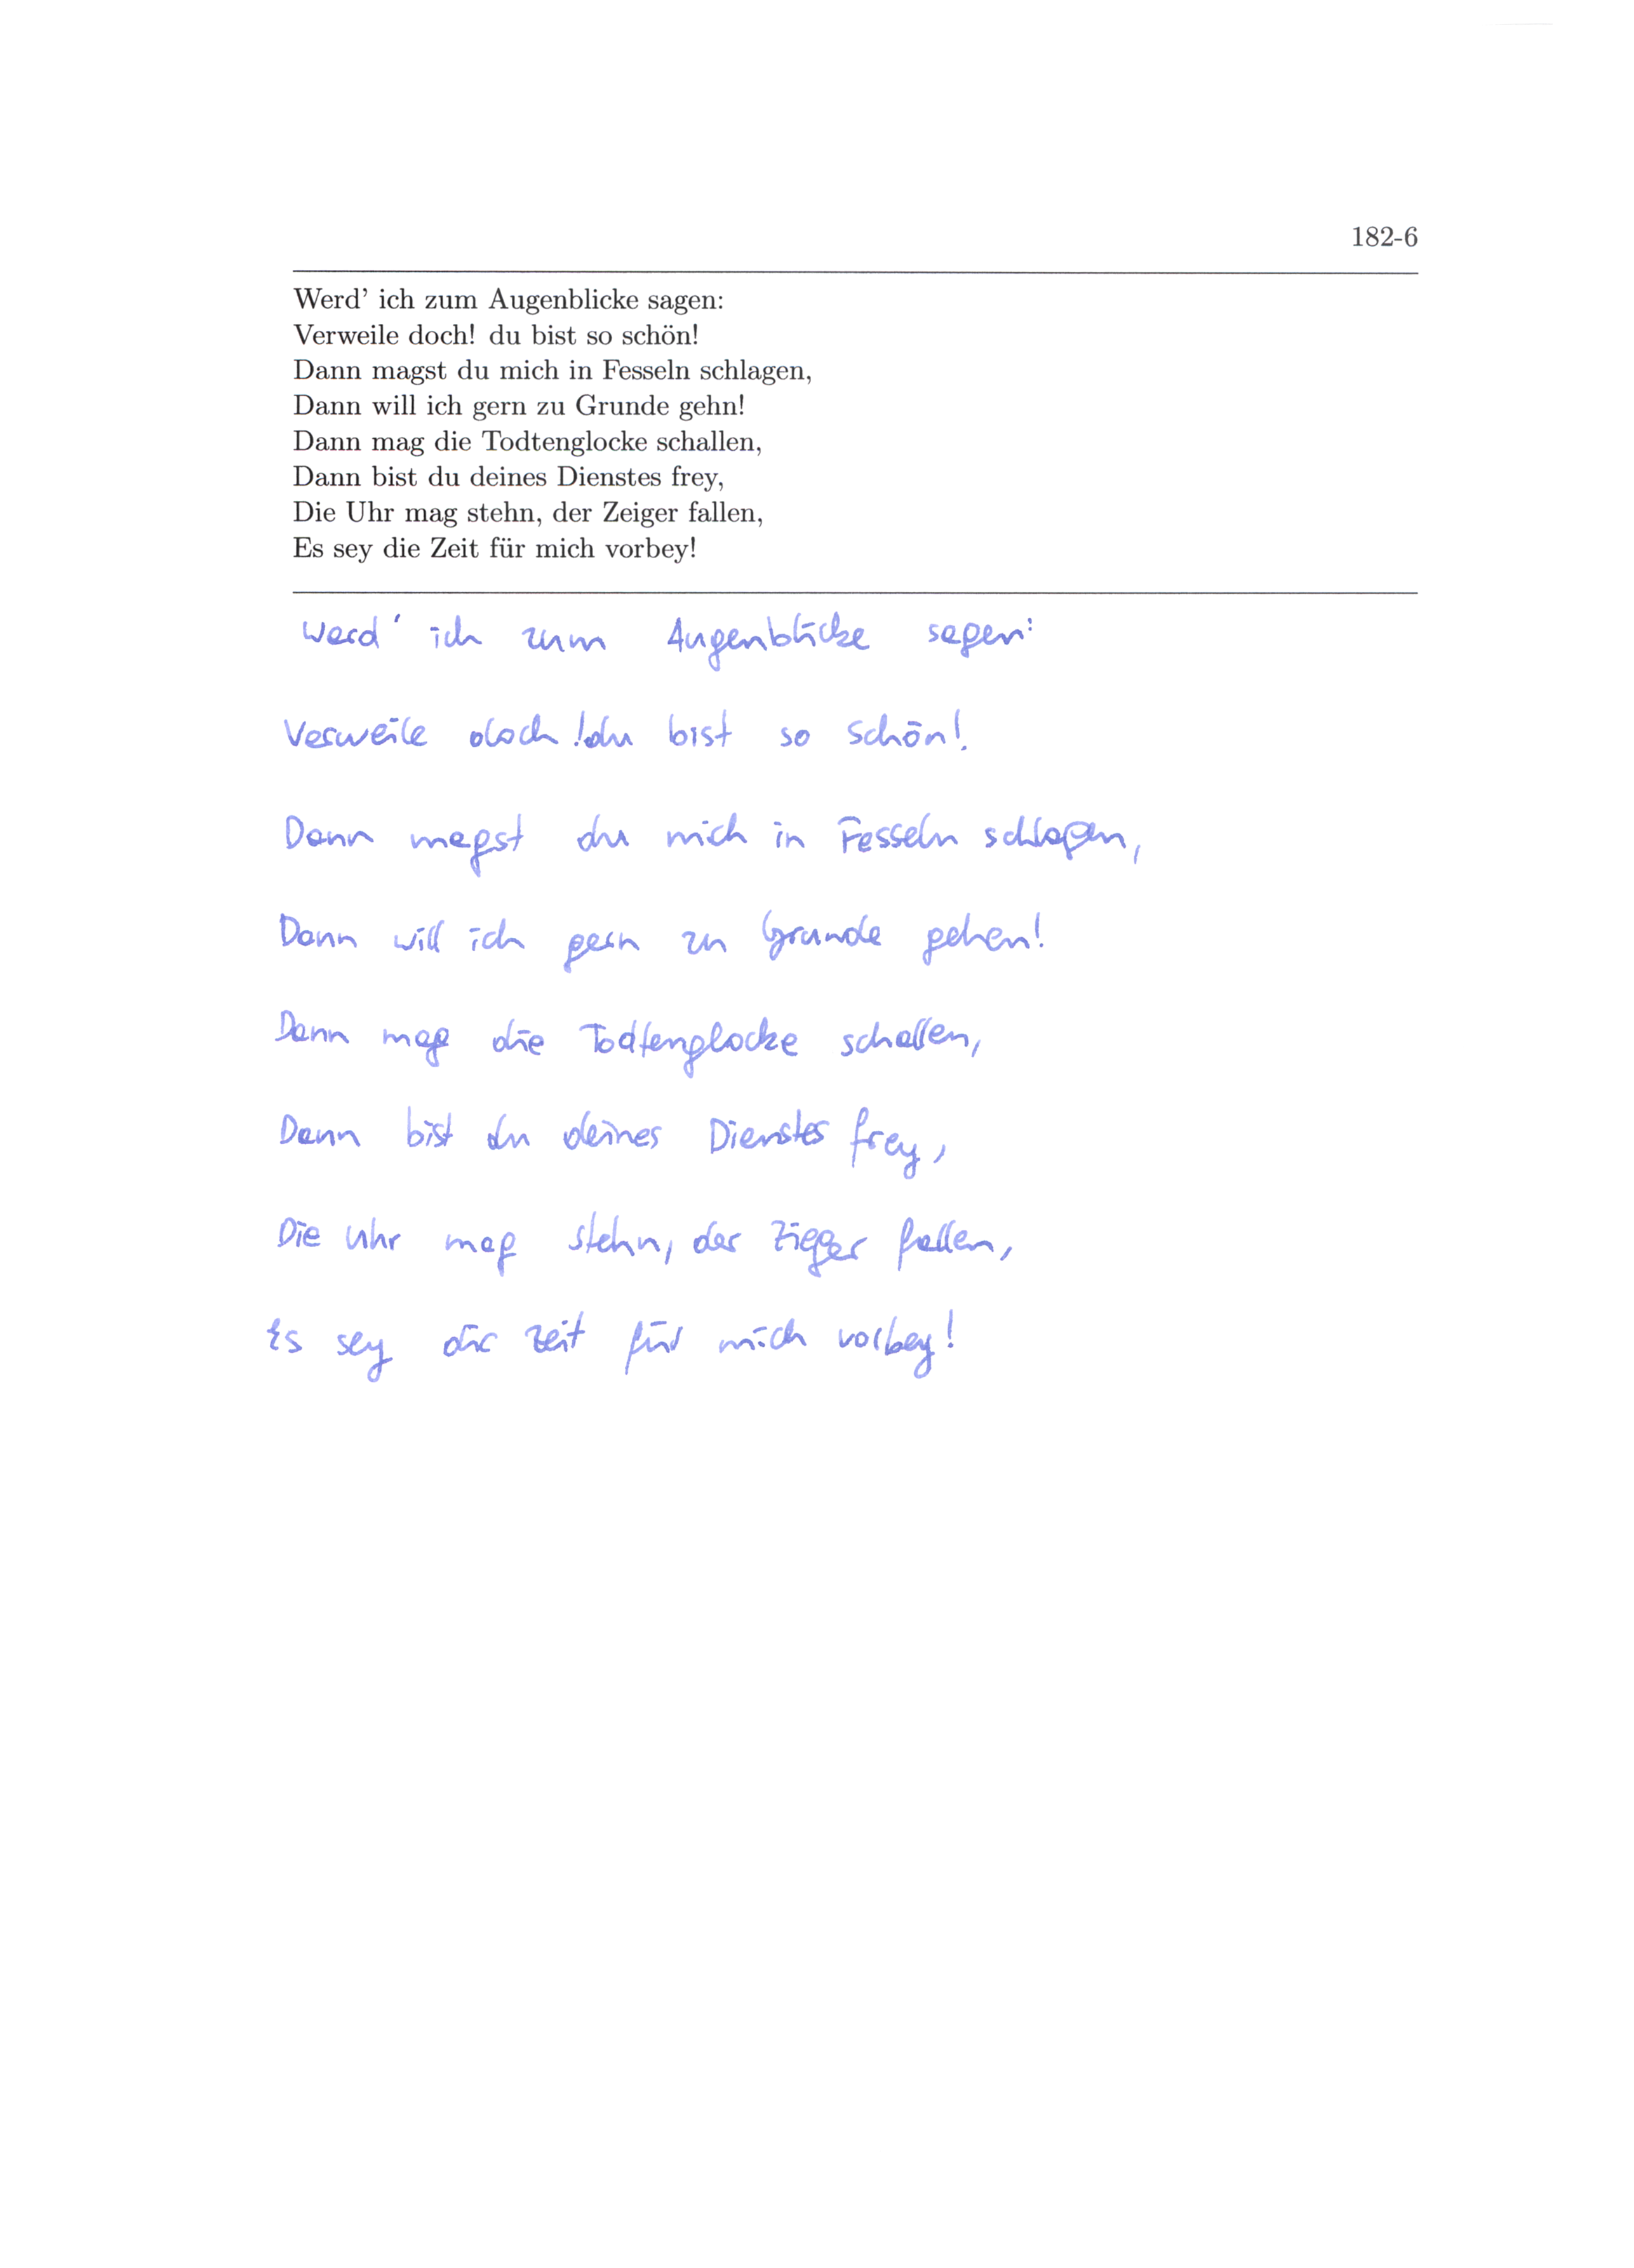 182-6
Werd’ ich zum Augenblicke sagen:
Verweile doch! du bist so schön!
Dann magst du mich in Fesseln schlagen,
Dann will ich gern zu Grunde gehn!
Dann mag die Todtenglocke schallen,
Dann bist du deines Dienstes frey,
Die Uhr mag stehn, der Zeiger fallen,
Es sey die Zeit für mich vorbey!
Werd' ich zum Augenblicke sagen:
Verweile doch! du bist so schön!
Dann magst du mich in Fesseln schlagen,
Dann will ich gern zu Grunde gehen!
Dann mag die Todtenglocke schallen,
Dann bist du deines Dienstes frey,
Die Uhr mag stehn, der Zieger fallen,
Es sey die Zeit für mich vorbey!